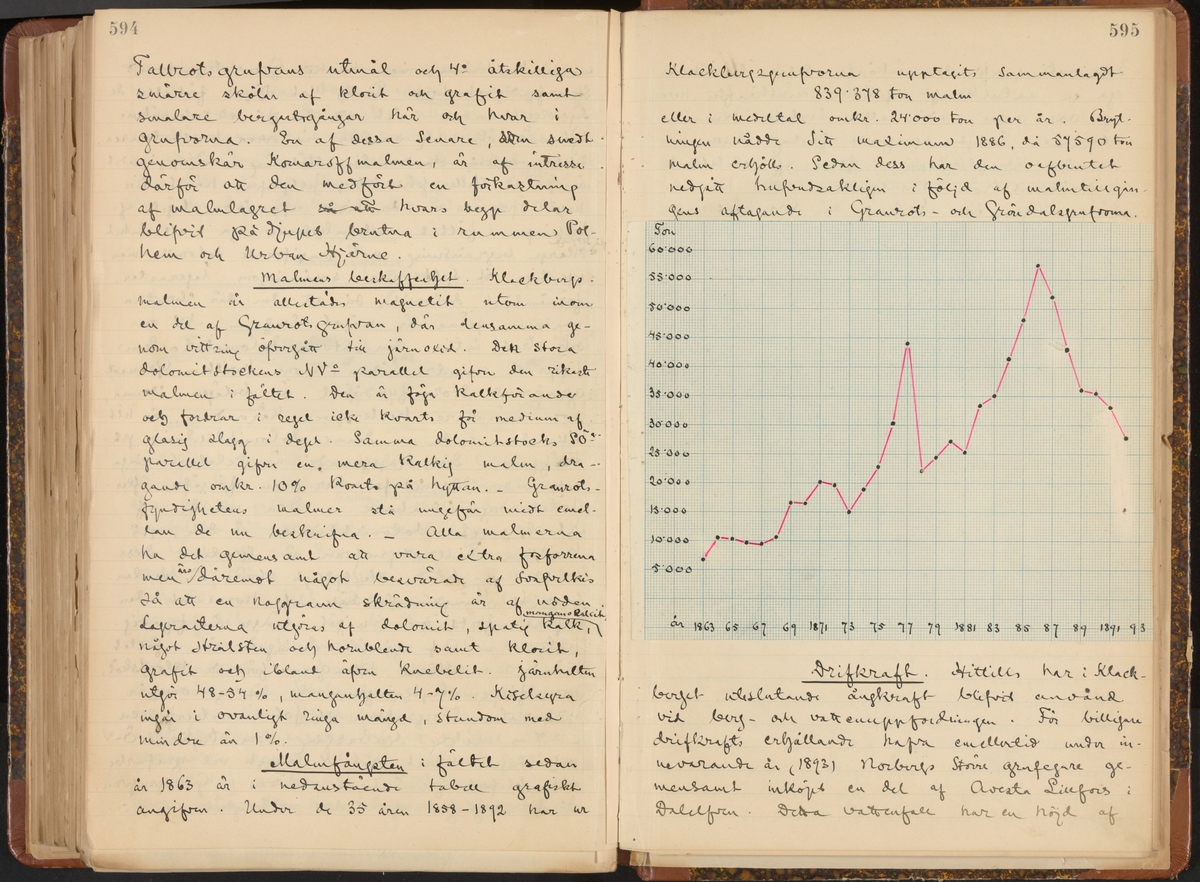 594
Falbrotsgrufvans utmål och 4º åtskilliga
smärre skölar af klorit och grafit samt
smalare bergartsgångar här och hvar i
grufvorna. En af dessa senare, som snedt
genomskär Komaroffmalmen, är af intresse
därför att den medfört en förkastning
af malmlagret så att hvars begge delar
blifvit på djupet brutna i rummen Pol-
hem och Urban Hjärne.
Malmens beskaffenhet. Klackbergs-
malmen är allestädes magnetit utom inom
en del af Granrotsgrufvan, där densamma ge-
nom vittring öfvergått till järnoxid. Den stora
dolomitstockens NVª parallel gifver den rikaste
malmen i fältet. Den är föga kalkförande
och fordrar i regel icke kvarts för medium af
glasig slagg i degel. Samma dolomitstocks SOª
parallel gifver en mera kalkig malm, dra-
gande omkr. 10% kvarts på hyttan. — Granrots-
fyndighetens malmer stå ungefär midt emel-
lan de nu beskrifna. — Alla malmerna
ha det gemensamt att vara extra fosforrena
men äro däremot något besvärade af svafvelkis
så att en noggrann skrädning är af nöden.
Lagerarterna utgöras af dolomit, spatig kalk, mangankalcit,
något strålsten och hornblende samt klorit,
grafit och ibland äfven knebelit. Järnhalten
utgör 48-54%, manganhalten 4-7%. Kiselsyra
ingår i ovanligt ringa mängd, stundom med
mindre än 1%.
Malmfångsten i fältet sedan
år 1863 är i nedanstående tabell grafiskt
angifven. Under de 35 åren 1858-1892 har ur
595
Klackbergsgrufvorna upptagits sammanlagdt
839.378 ton malm
eller i medeltal omkr. 24.000 ton per år. Bryt-
ningen nådde sitt maximum 1886, då 57590 ton
malm erhölls. Sedan dess har den oafbrutet
nedgått hufvudsakligen i följd af malmtillgån-
gens aftagande i Granrots- och Gröndalsgrufvorna.
Ton
60.000
55.000
50.000
45.000
40.000
35.000
30.000
25.000
20.000
15.000
10.000
5.000
år 1863 65 67 69 1871 73 75 77 79 1881 83 85 87 89 1891 93
Drifkraft. Hittills har i Klack-
berget uteslutande ångkraft blifvit använd
vid berg- och vattenuppfordringen. För billigare
drifkrafts erhållande hafva emellertid under in-
nevarande år (1893) Norbergs större grufegare ge-
mensamt inköpt en del af Avesta Lillfors i
Dalelfven. Detta vattenfall har en höjd af